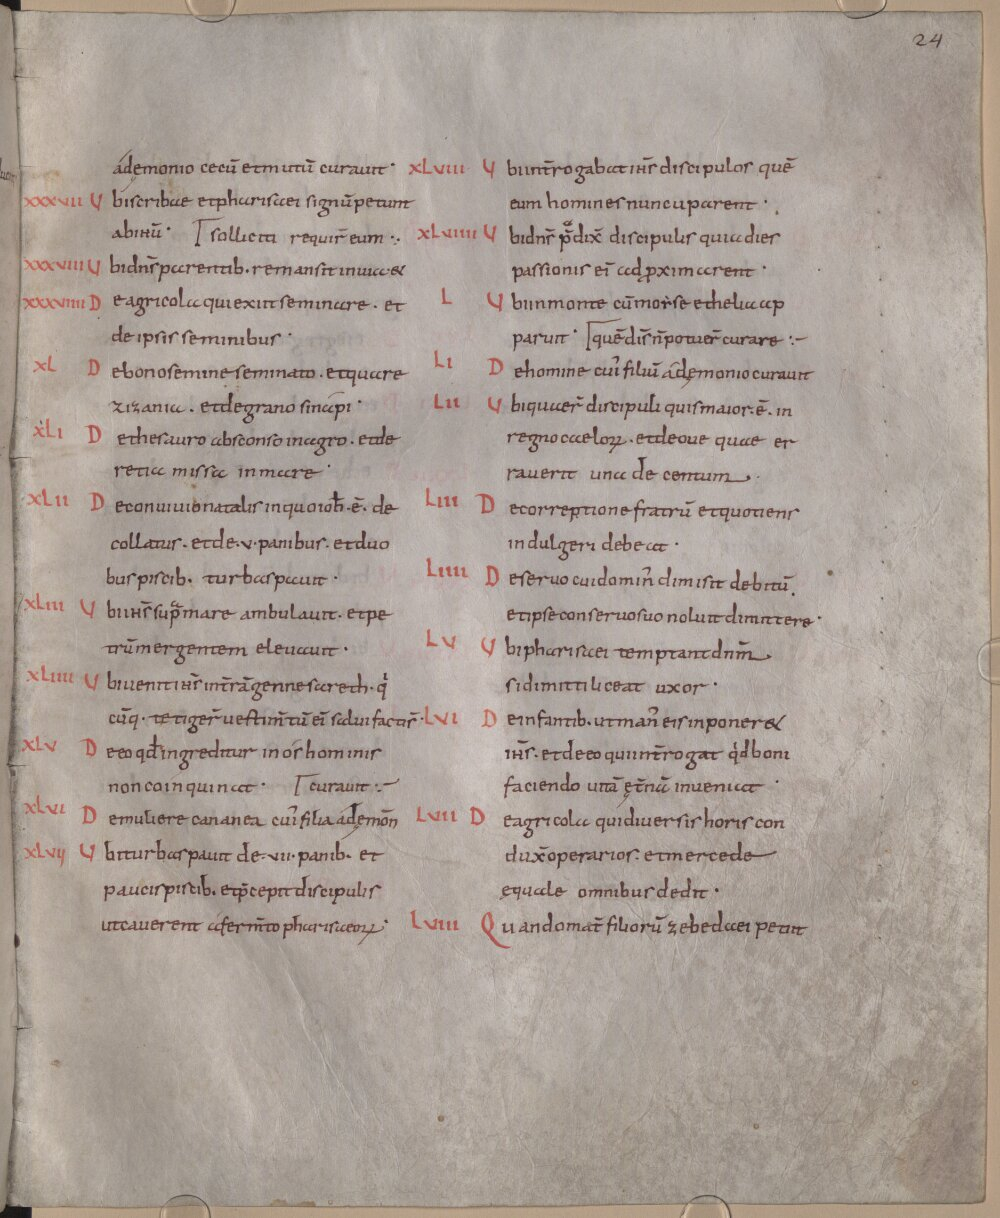 24
ademonio cecū et mutū curauit·
xxxvii Ubi scribae et pharisaei signū petunt
ab ihū· sollicita requir̄ eum·
xxxviii Ubi dn̄s parentib. remansit in uia &
xxxviiii De agricola qui exiit seminare. et
de ipsis seminibus·
xL De bono semine seminato. et quare
zizania. et de grano sinapi·
xLi De thesauro absconso in agro. et de
retia missa in mare·
xLii De conuiuio natalis in quo ioh̄·ē· de
collatus. et de·v·panibus. et duo
bus piscib. turbas pauit·
xLiii Ubi ih̄s sup̄ mare ambulauit. et pe
trū mergentem eleuauit·
xLiiii Ubi uenit ih̄s in tr̄a gennesareth. q̄
cūq· tetiger̄ uestim̄tū ei salui facti s̄·
xLv De eo qd̄ ingreditur in os hominis
non coinquinat· curauit·
xLvi De muliere cananea cui filia a demōn
xLvij Ubi turbas pauit de·vii·panib. et
paucis piscib. et p̄cepit discipulis
ut cauerent a ferm̄to pharisaeoꝝ·
xLviii Ubi intr̄rogabat ih̄s discipulos quē
eum homines nuncuparent·
xLviiii Ubi dn̄s p̄dix̄ discipulis quia dies
passionis ei adp̱ximarent·
L Ubi in monte cū moẏse et helia ap
paruit· quē dis̄ n̄ potuer̄ curare·
Li De homine cui filiū a demonio curauit
Lii Ubi quaer̄ discipuli quis maior·ē· in
regno caeloꝝ. et de oue quae er
rauerit una de centum·
Liii De correptione fratrū et quotiens
indulgeri debeat·
Liiii De seruo cui domin̄ dimisit debitū
et ipse conseruo suo noluit dimittere·
Lv Ubi pharisaei temptant dn̄m
si dimitti liceat uxor·
Lvi De infantib. ut man̄ eis inponer&
ih̄s· et de eo qui intr̄rogat qd̄ boni
faciendo uitā et̄nā inueniat·
Lvii De agricola qui diuersis horis con
dux̄ operarios. et mercede
equale omnibus dedit·
Lviii Quando mat̄ filiorū zebedaei petiit